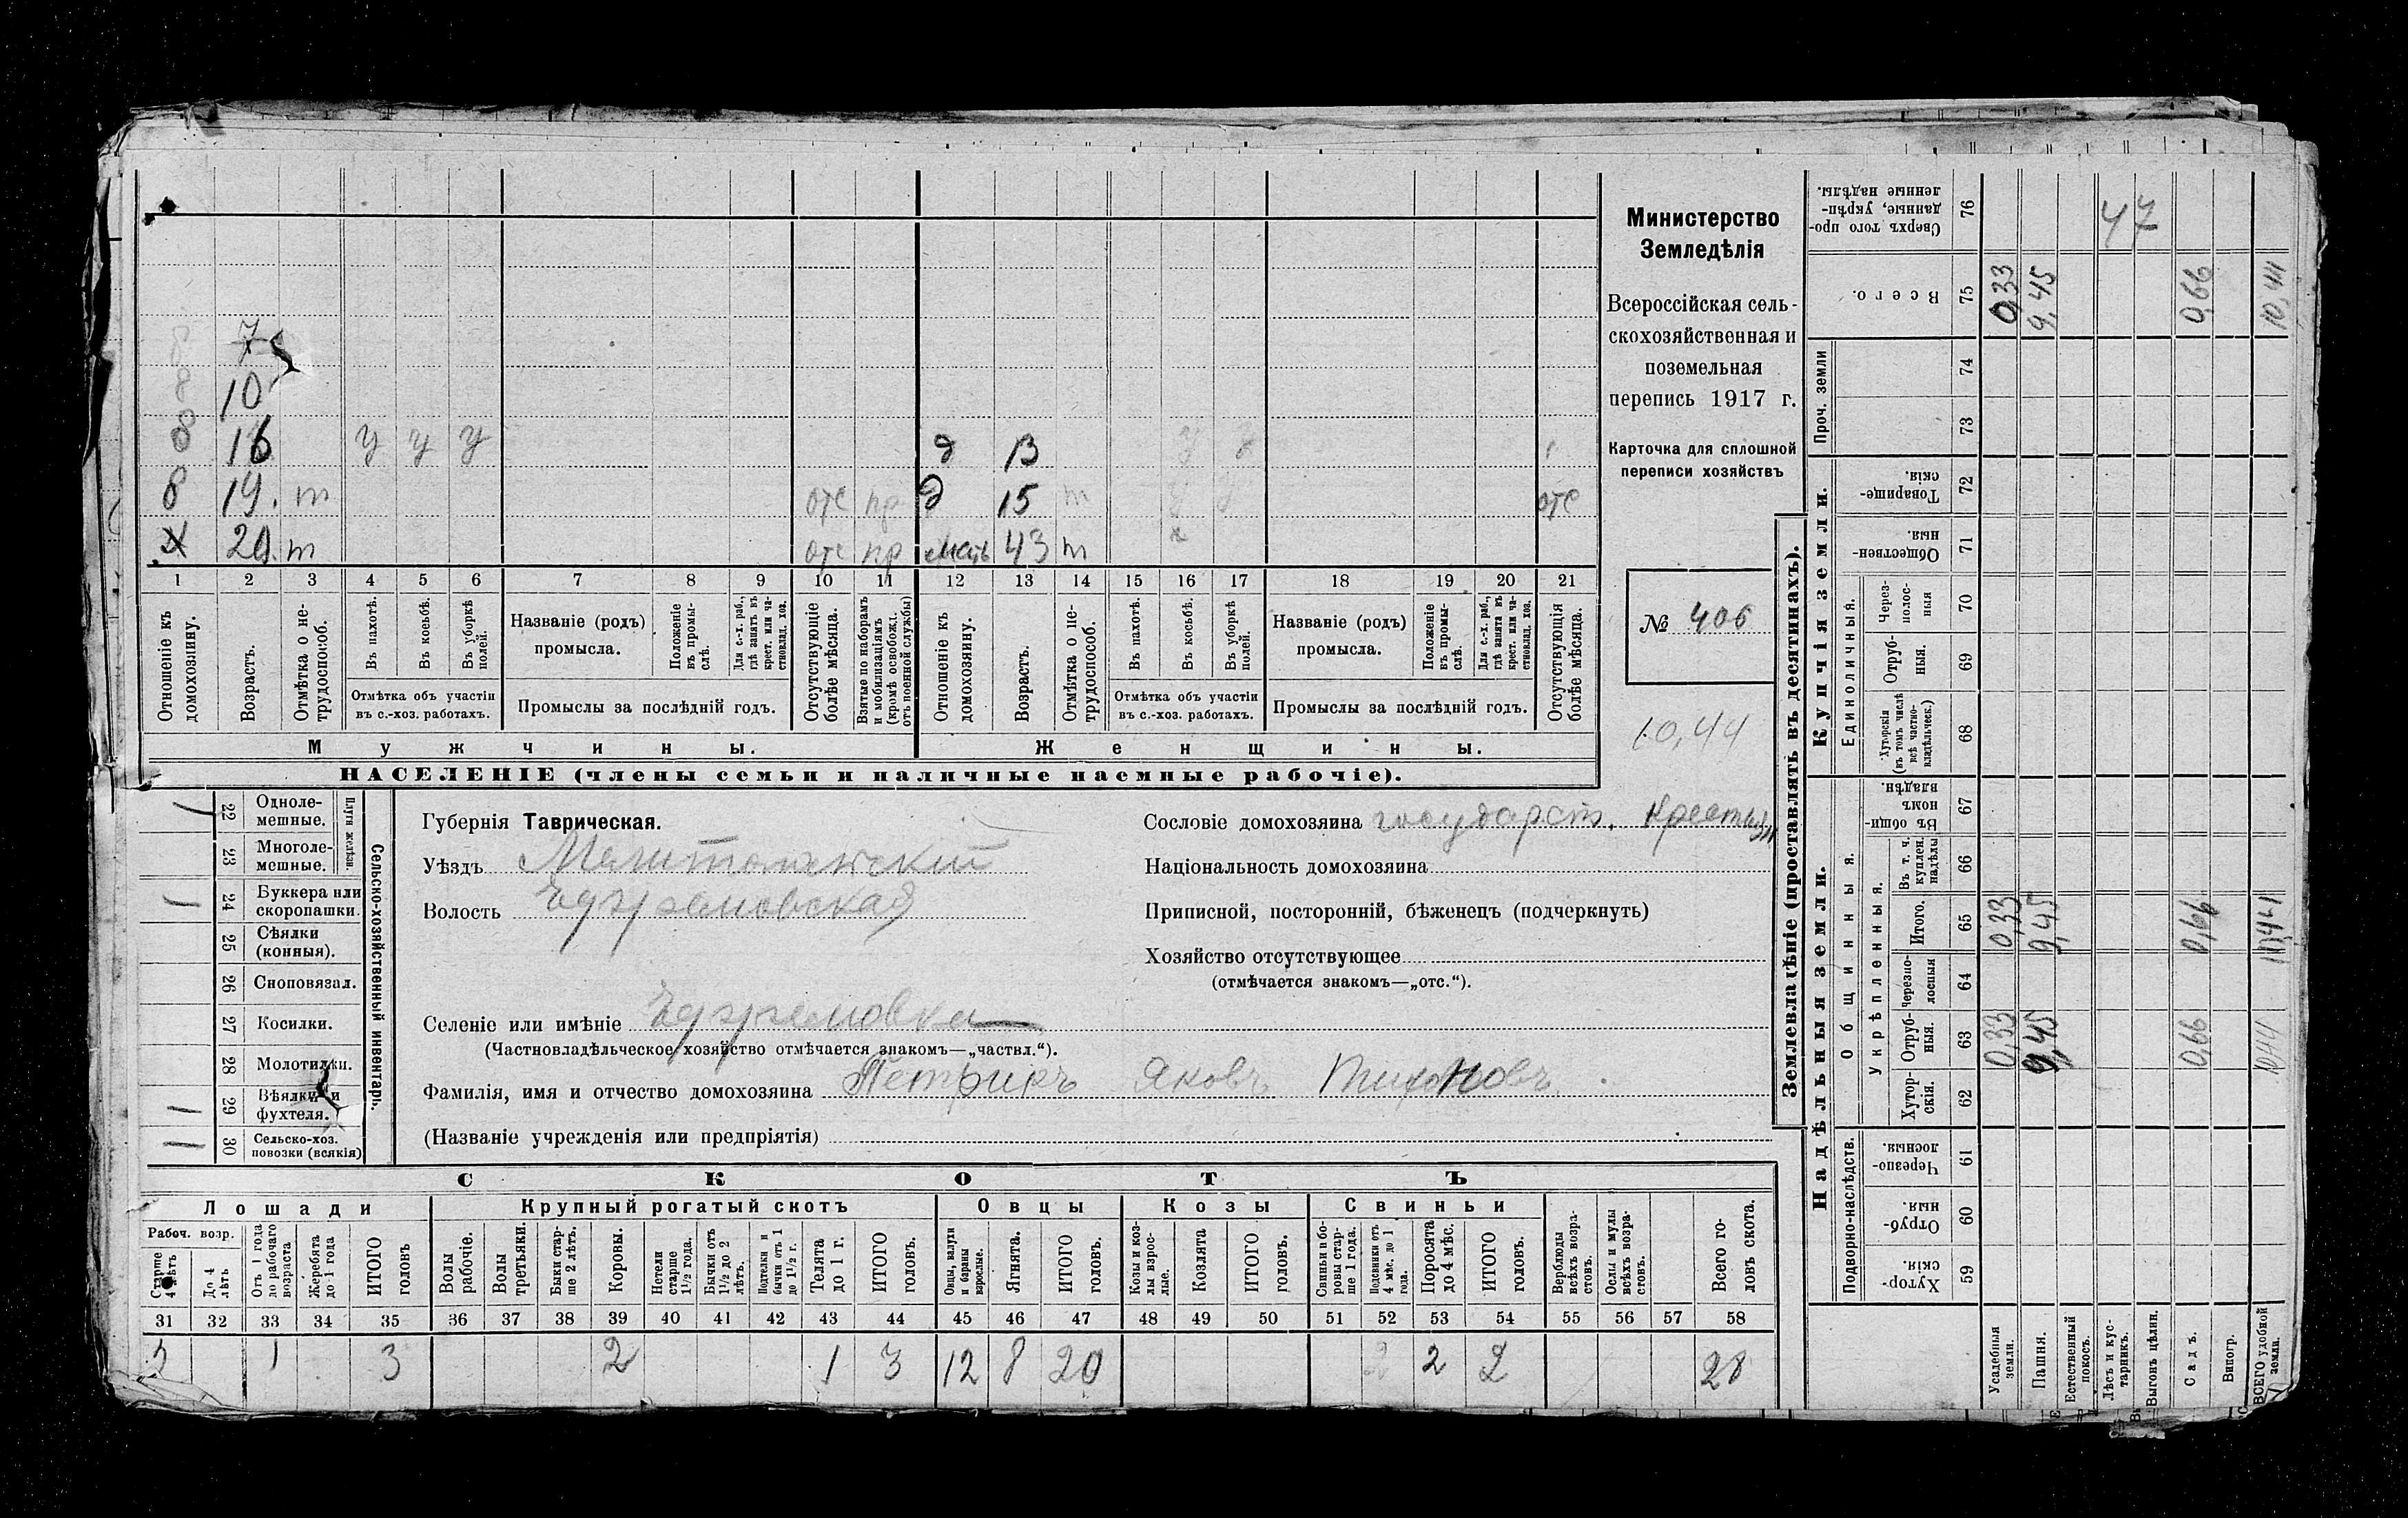 8 7
8 10
8 16 у у у д 13 у у
8 19. т отс пр д 15 т у у отс
Х 20. т отс пр мать 43 т
1 2 3 4 5 6 7 8 9 10 11 12 13 14 15 16 17 18 19 20 21
Отношеніе къ домохозяину.
Возрастъ.
Отмѣтка о не-
трудоспособ.
Въ пахотѣ.
Въ косьбѣ.
Въ уборкѣ полей.
Отмѣтка объ участіи
въ с.-хоз. работахъ.
Названіе (родъ)
промысла.
Положеніе
въ промы-
слѣ.
Для с.-х. раб.,
гдѣ занятъ въ
крест. или ча-
стновлад. хоз.
Промыслы за послѣдній годъ.
Отсутствующіе
болѣе мѣсяца.
Взятые по наборамъ
и мобилизаціямъ
(кромѣ освобожд.
отъ военной службы)
Отношеніе къ
домохозяину.
Возрастъ.
Отмѣтка о не-
трудоспособ.
Въ пахотѣ.
Въ косьбѣ.
Въ уборкѣ
полей.
Отмѣтка объ участіи
въ с.-хоз. работахъ.
Названіе (родъ)
промысла.
Положеніе
въ промы-
слѣ.
Для с.-х. раб.,
гдѣ занята въ
крест. или ча-
стновлад. хоз.
Промыслы за послѣдній годъ.
Отсутствующія
болѣе мѣсяца.
Мужчины.
Женщины.
НАСЕЛЕНІЕ (члены семьи и наличные наемные рабочіе).
Министерство
Земледѣлія
Всероссійская сель-
скохозяйственная и
поземельная
перепись 1917 г.
Карточка для сплошной
переписи хозяйствъ
№ 406
10,44
Плуги желѣзн.
22 Одноле-
мешные.
23 Многоле-
мешные.
24 Буккера или
скоропашки.
25 Сѣялки
(конныя).
26 Сноповязал.
27 Косилки.
28 Молотилки.
29 Вѣялки и
фухтеля.
30 Сельско-хоз.
повозки (всякія)
Сельско-хозяйственный инвентарь.
Губернія Таврическая.
Уѣздъ Мелитопольскій
Волость Ефремовская
Селеніе или имѣніе Ефремовка
(Частновладѣльческое хозяйство отмѣчается знакомъ—„частвл.“).
Фамилія, имя и отчество домохозяина Яковъ Тихоновъ
(Названіе учрежденія или предпріятія)
Сословіе домохозяина государств. крестьян
Національность домохозяина
Приписной, посторонній, бѣженецъ (подчеркнуть)
Хозяйство отсутствующее
(отмѣчается знакомъ—„отс.“).
СКОТЪ
Лошади
Рабоч. возр.
Старше
4 лѣтъ
До 4
лѣтъ
Отъ 1 года
до рабочаго
возраста
Жеребята
до 1 года
ИТОГО
головъ
Крупный рогатый скотъ
Волы
рабочіе.
Волы
третьяки.
Быки стар-
ше 2 лѣтъ.
Коровы.
Нетели
старше
1½ года.
Бычки отъ
1½ до 2
лѣтъ.
Подтелки и
бычки отъ 1
до 1½ г.
Телята
до 1 г.
ИТОГО
головъ.
Овцы
Овцы, валухи
и бараны
взрослые.
Ягнята.
ИТОГО
головъ.
Козы
Козы и коз-
лы взрос-
лые.
Козлята
ИТОГО
головъ.
Свиньи
Свиньи и бо-
ровы стар-
ше 1 года.
Подсвинки отъ
4 мѣс. до 1
года.
Поросята
до 4 мѣс.
ИТОГО
головъ.
Верблюды
всѣхъ возра-
стовъ.
Ослы и мулы
всѣхъ возра-
стовъ.
Всего го-
ловъ скота.
31 32 33 34 35 36 37 38 39 40 41 42 43 44 45 46 47 48 49 50 51 52 53 54 55 56 57 58
2 1 3 2 1 3 12 8 20 2 2 28
Землевладѣніе (проставлять въ десятинахъ).
Надѣльныя земли.
Купчія земли.
Проч. земли
Подворно-наслѣдств.
Общинныя.
Укрѣпленныя.
Единоличныя.
Хутор-
скія. 59
Отруб-
ныя. 60
Черезпо-
лосныя. 61
Хутор-
скія. 62
Отруб-
ныя. 63
Черезпо-
лосныя 64
Итого. 65
Въ т. ч.
куплен.
надѣлы 66
Въ общин-
номъ
владѣн. 67
Хуторскія
(въ томъ числѣ
всѣ частно-
владѣльческ.) 68
Отруб-
ныя. 69
Через-
полос-
ныя 70
Обществен-
ныя 71
Товарище-
скія. 72
73
74
Всего. 75
Сверхъ того про-
данные, укрѣп-
ленные надѣлы. 76
Усадебныя
земли. 0,33 0,33 0,33
Пашня. 9,45 9,45 9,45
Естественный
покосъ.
Лѣсъ и кус-
тарникъ.
Выгонъ цѣлин.
Садъ. 0,66 0,66 0,66
Виногр.
ВСЕГО удобной
земли. 10,44 10,44 10,44
47